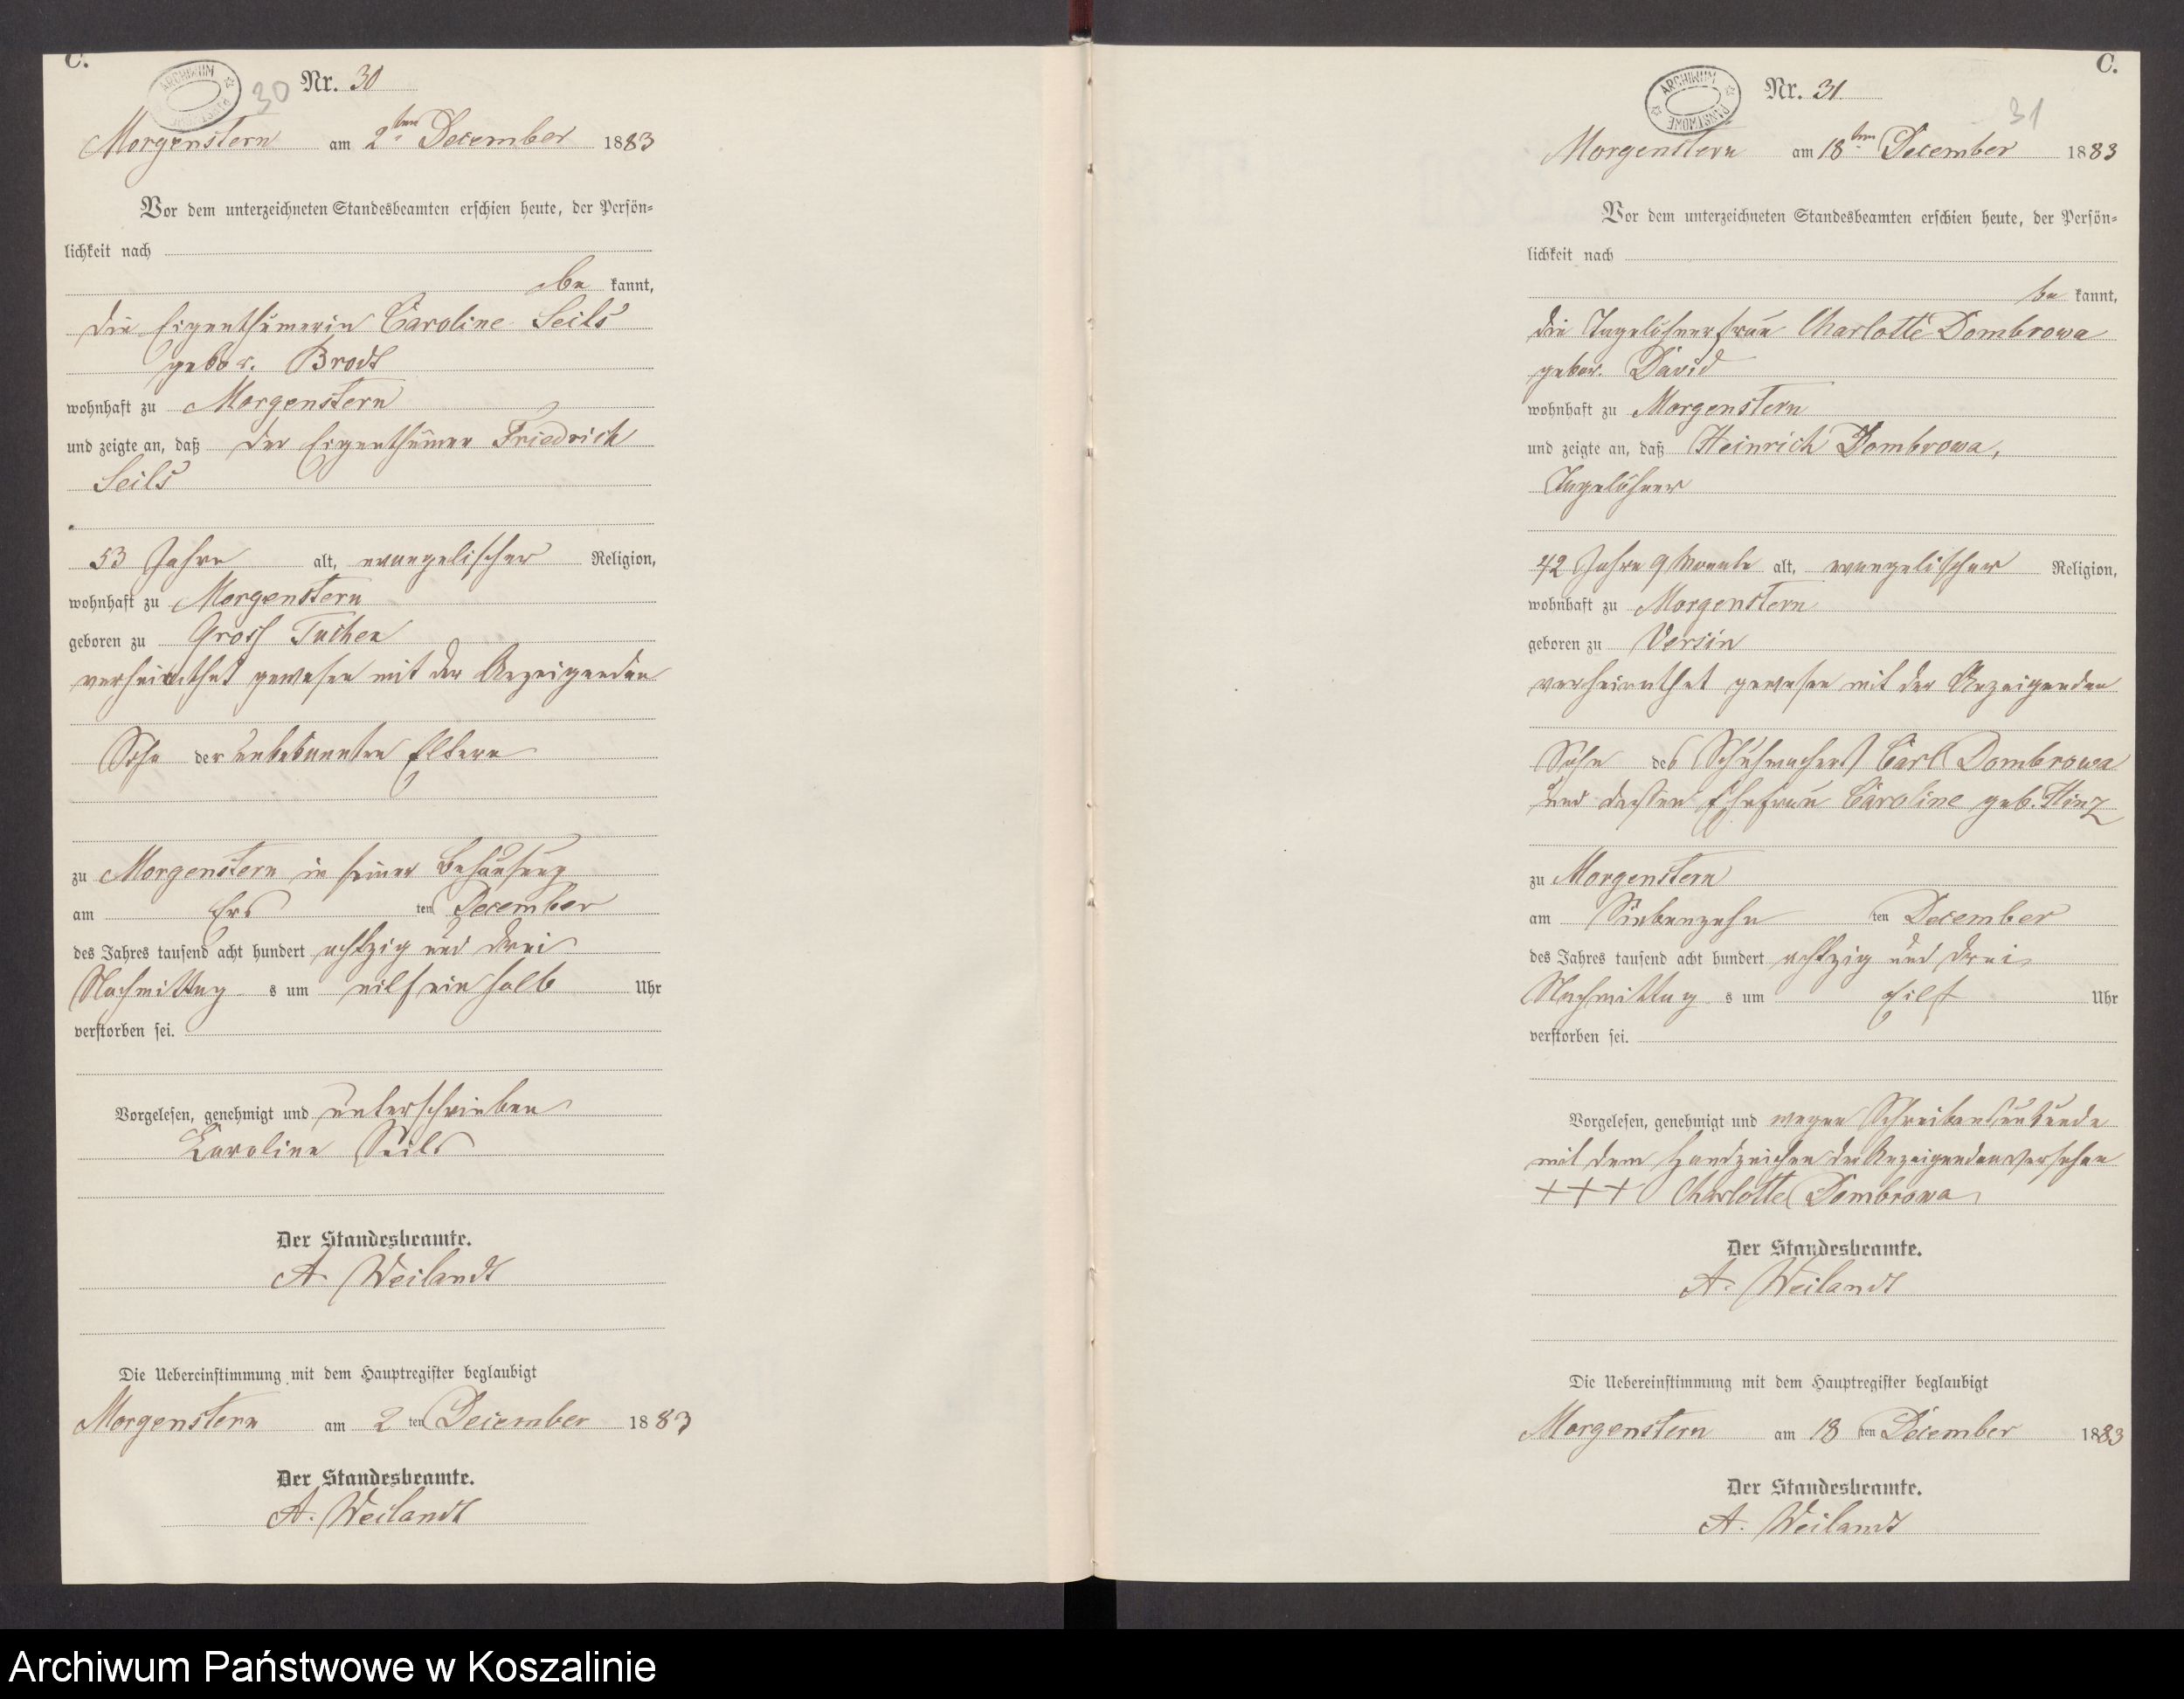 C.
ARCHIWUM PAŃSTWOWE
30 Nr. 30
Morgenstern am 2ten December 1883
Vor dem unterzeichneten Standesbeamten erschien heute, der Persön-
lichkeit nach
be kannt,
die Eigenthümerin Caroline Seils
gebor. Brodt
wohnhaft zu Morgenstern
und zeigte an, daß der Eigenthümer Friedrich
Seils
53 Jahre alt, evangelischer Religion,
wohnhaft zu Morgenstern
geboren zu Gross Tuchen
verheirathet gewesen mit der Anzeigenden
Sohn der unbekannten Eltern
zu Morgenstern in seiner Behausung
am Ers ten December
des Jahres tausend acht hundert achtzig und drei
Nachmittag s um eilf ein halb Uhr
verstorben sei.
Vorgelesen, genehmigt und unterschrieben
Karoline Seils
Der Standesbeamte.
A. Weilandt
Die Uebereinstimmung mit dem Hauptregister beglaubigt
Morgenstern am 2 ten December 1883
Der Standesbeamte.
A. Weilandt
C.
ARCHIWUM PAŃSTWOWE
Nr. 31
31
Morgenstern am 18ten December 1883
Vor dem unterzeichneten Standesbeamten erschien heute, der Persön-
lichkeit nach
be kannt,
die Tagelöhnerfrau Charlotte Dombrowa
gebor. David
wohnhaft zu Morgenstern
und zeigte an, daß Heinrich Dombrowa,
Tagelöhner
42 Jahre 9 Monate alt, evangelischer Religion,
wohnhaft zu Morgenstern
geboren zu Versin
verheirathet gewesen mit der Anzeigenden
Sohn des Schuhmachers Carl Dombrowa
und dessen Ehefrau Caroline geb. Hinz
zu Morgenstern
am Siebenzehn ten December
des Jahres tausend acht hundert achtzig und drei
Nachmittag s um eilf Uhr
verstorben sei.
Vorgelesen, genehmigt und wegen Schreibensunkunde
mit dem Handzeichen der Anzeigenden versehen
+++ Charlotte Dombrowa
Der Standesbeamte.
A. Weilandt
Die Uebereinstimmung mit dem Hauptregister beglaubigt
Morgenstern am 18 ten December 1883
Der Standesbeamte.
A. Weilandt
Archiwum Państwowe w Koszalinie